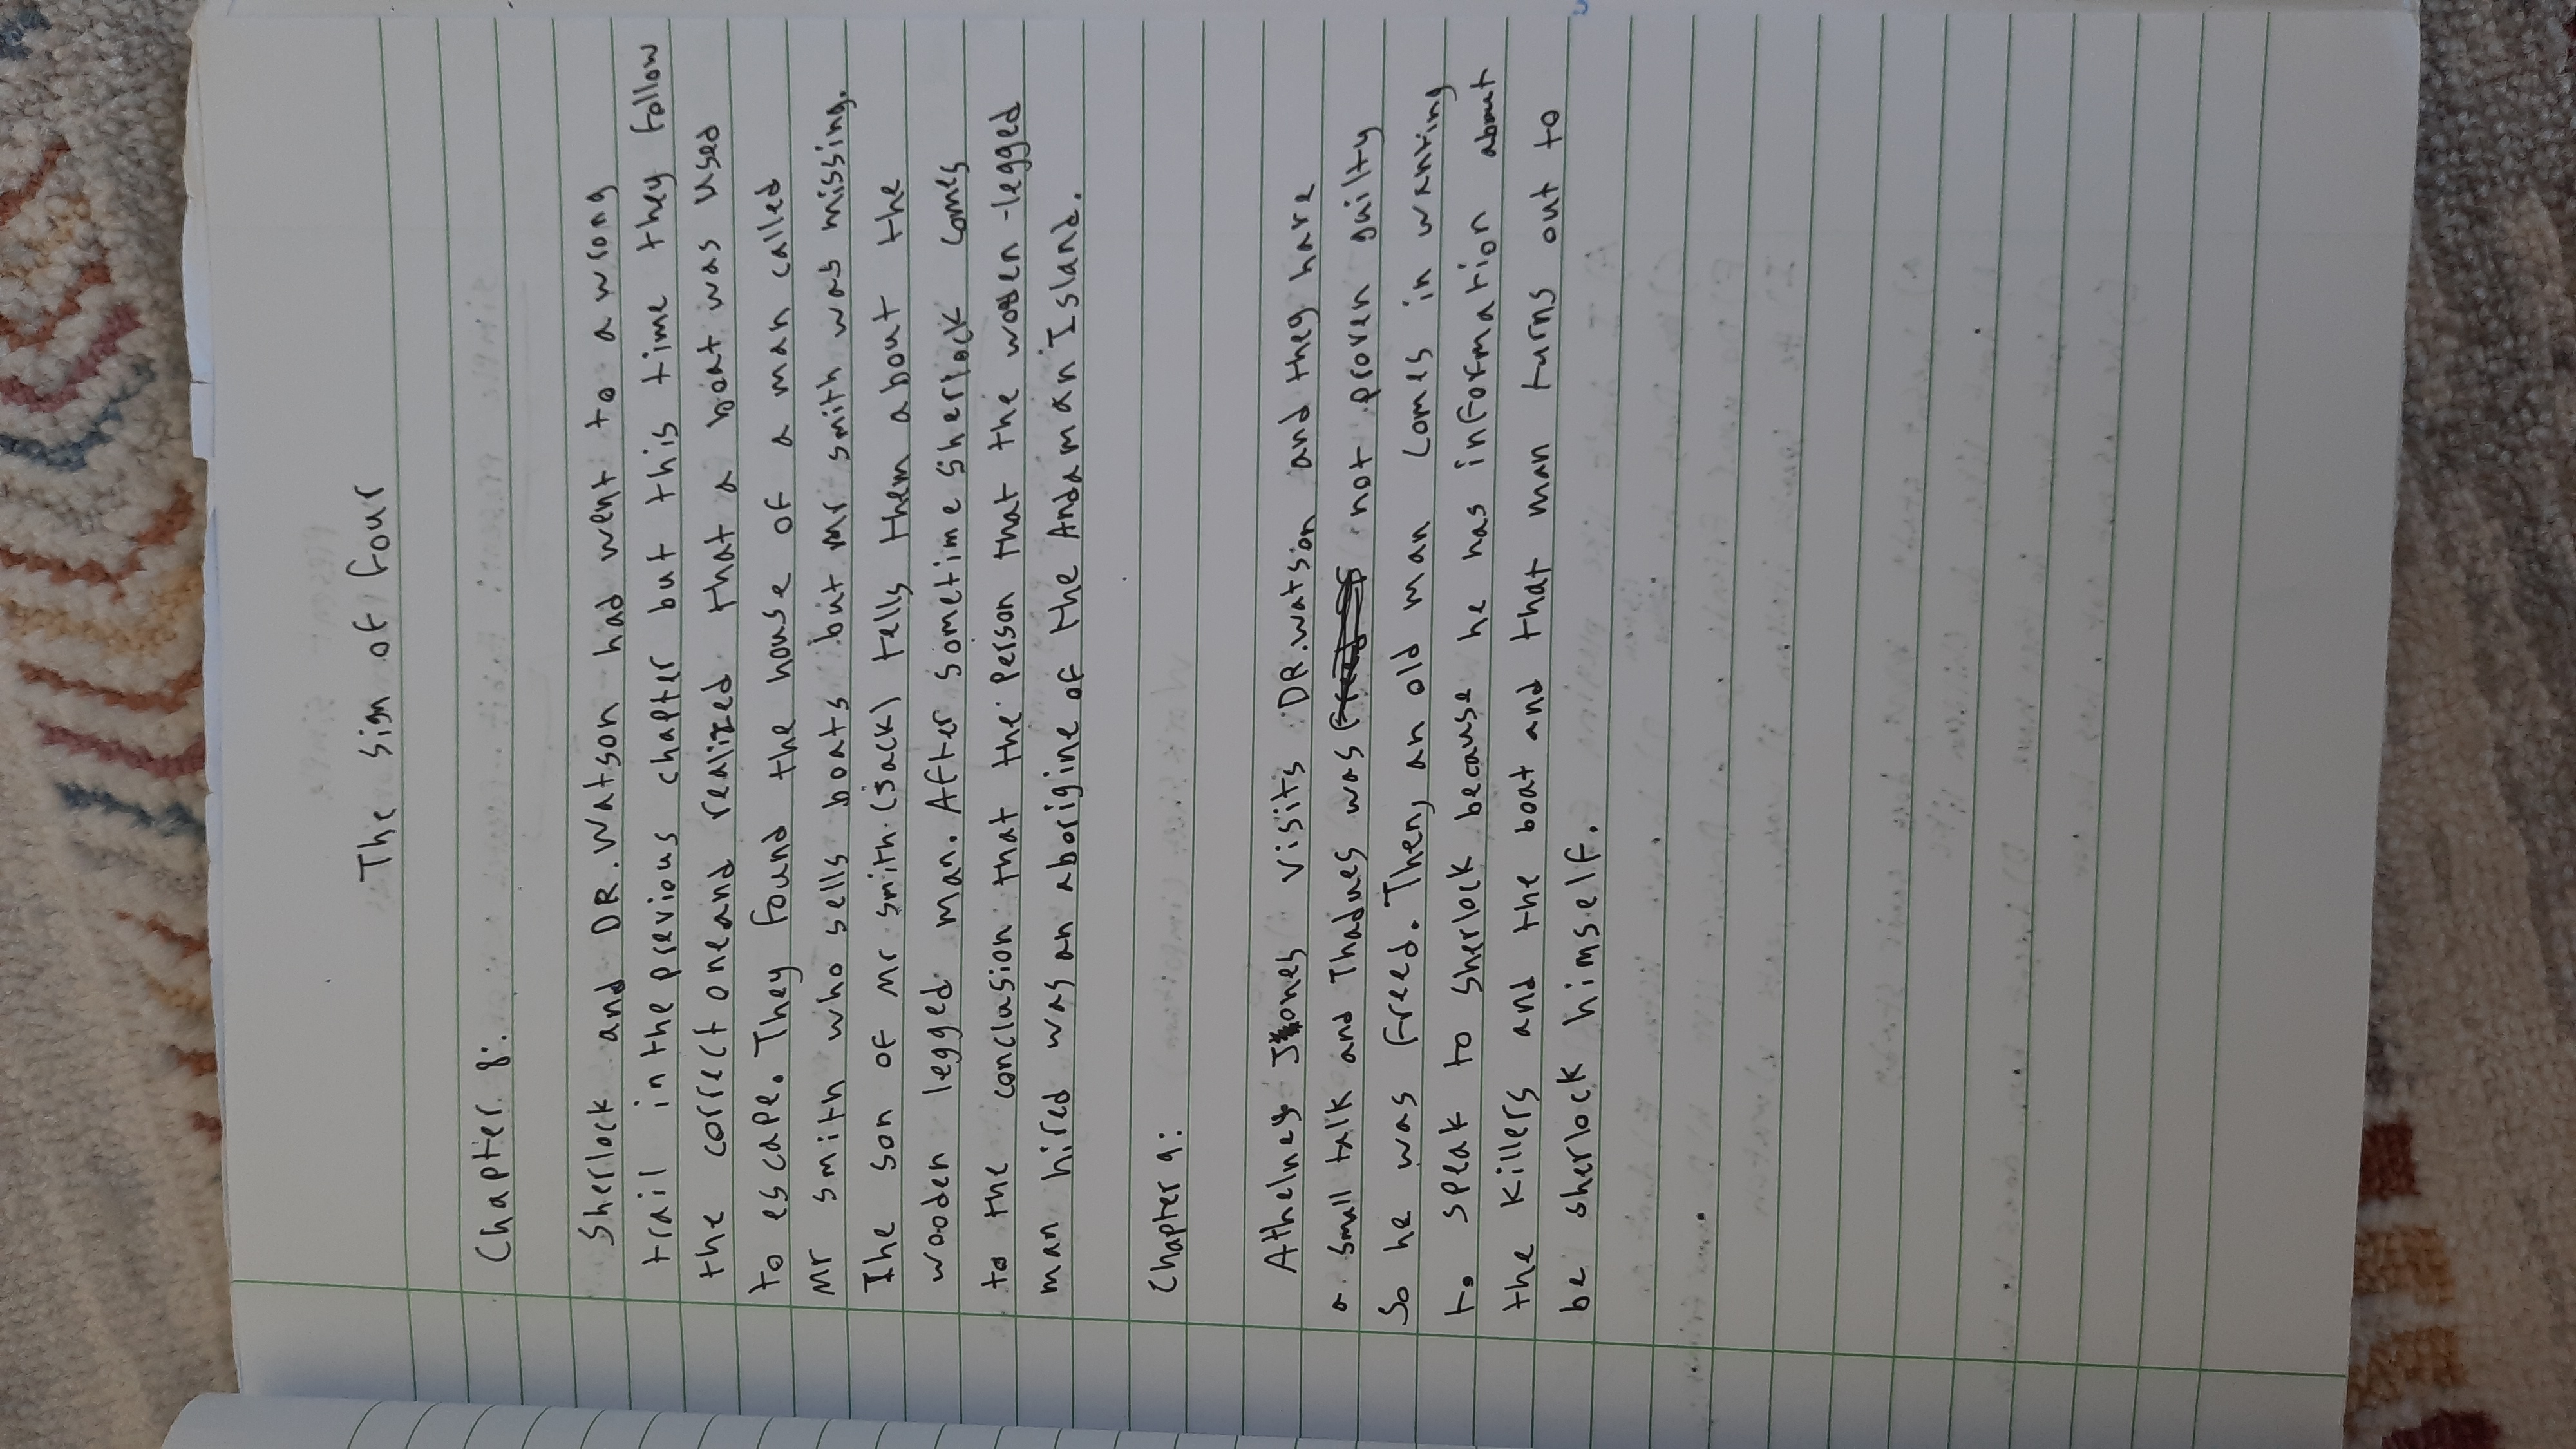 The sign of four
Chapter 8:
Sherlock and DR. Watson had went to a wrong
trail in the previous chapter but this time they follow
the correct one and realized that a boat was used
to escape. They found the house of a man called
Mr smith who sells boats but Mr smith was missing.
The son of Mr smith (Jack) tells them about the
wooden legged man. After sometime Sherlock comes
to the conclusion that the person that the wooden-legged
man hired was an aborigine of the Andaman Island.
Chapter 9:
Athelney Jones visits DR. Watson and they have
a small talk and Thadues was not proven guilty
So he was freed. Then, an old man comes in wanting
to speak to Sherlock because he has information about
the killers and the boat and that man turns out to
be sherlock himself.